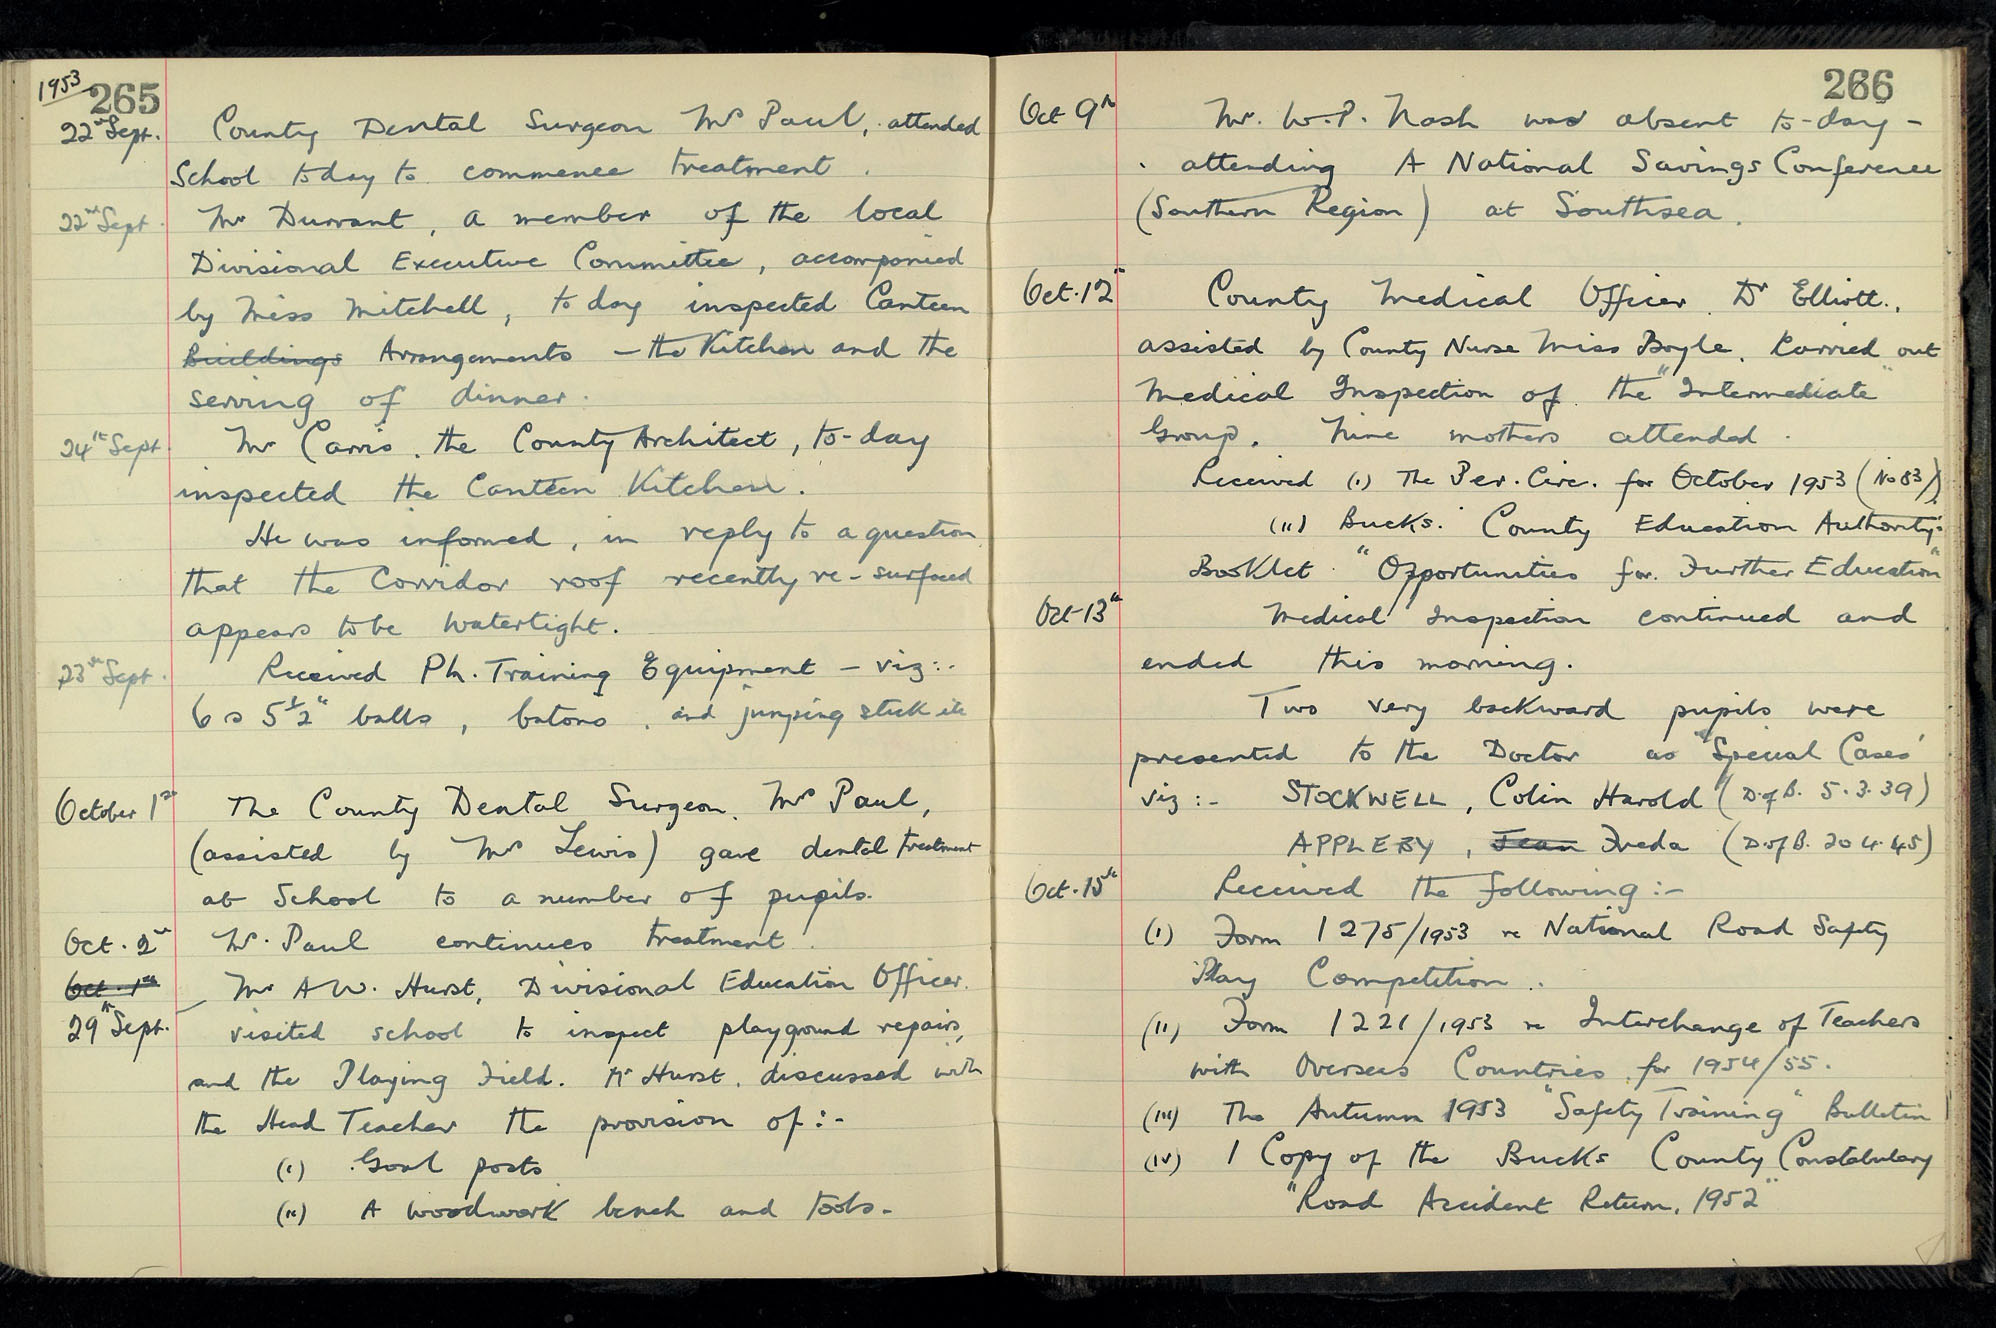 1953
265
22nd Sept. County Dental Surgeon Mrs Paul, attended
School today to commence treatment.
22nd Sept. Mr Durrant, a member of the local
Divisional Executive Committee, accompanied
by Miss Mitchell, to day inspected Canteen
Buildings Arrangements – the Kitchen and the
serving of dinner.
24th Sept. Mr Carris, the County Architect, to-day
inspected the Canteen Kitchen.
He was informed, in reply to a question
that the Corridor roof recently re-surfaced
appears to be watertight.
23rd Sept. Received Ph. Training Equipment – viz:-
6 5½" balls, batons, and jumping stick etc
October 1st The County Dental Surgeon, Mrs Paul,
(assisted by Mrs Lewis) gave dental treatment
at School to a number of pupils.
Oct. 2nd Mrs. Paul continues treatment.
Oct. 1st Mr A W. Hurst, Divisional Education Officer.
29th Sept. visited school to inspect playground repairs,
and the Playing Field. Mr Hurst, discussed with
the Head Teacher the provision of:-
(i) Goal posts
(ii) A woodwork bench and tools.-
266
Oct 9th Mr. W.P. Nash was absent to-day –
attending A National Savings Conference
(Southern Region) at Southsea.
Oct. 12th County Medical Officer Dr Elliott.,
assisted by County Nurse Miss Boyle, Carried out
Medical Inspection of the "Intermediate"
Group. Nine mothers attended.
Received (i) The Per. Circ. for October 1953 (No 83)
(ii) Bucks. County Education Authority:
Booklet "Opportunities for Further Education"
Oct 13th Medical Inspection continued and
ended this morning.
Two very backward pupils were
presented to the Doctor as "Special Cases"
viz:- STOCKWELL, Colin Harold (D.of B. 5.3.39)
APPLEBY, Jean Freda (D.of B. 20 4.45)
Oct. 15th Received the following:-
(i) Form 1275/1953 re National Road Safety
Play Competition.
(ii) Form 1221/1953 re Interchange of Teachers
with Overseas Countries for 1954/55.
(iii) The Autumn 1953 "Safety Training" Bulletin
(iv) 1 Copy of the Bucks County Constabulary
"Road Accident Return, 1952"